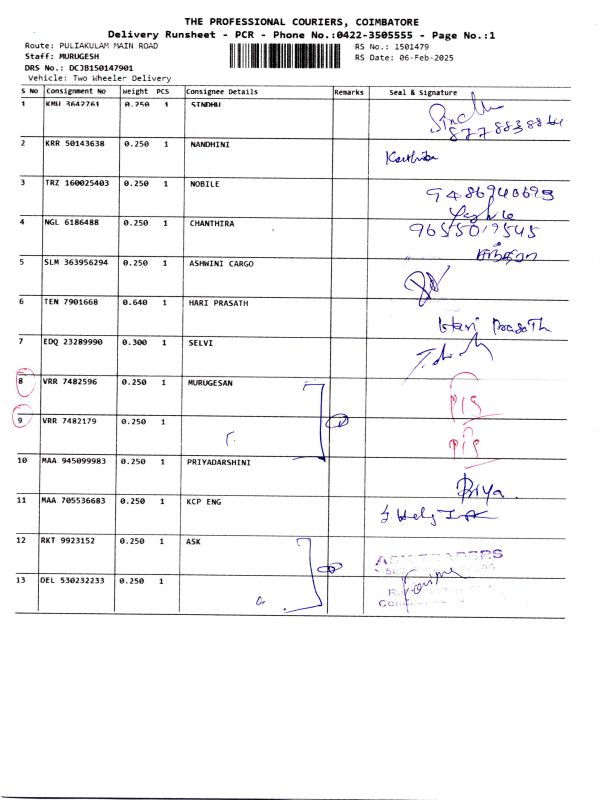 THE PROFESSIONAL COURIERS, COIMBATORE
Delivery Runsheet - PCR - Phone No.:0422-3505555 - Page No.:1
Route: PULIAKULAM MAIN ROAD RS No.: 1501479
Staff: MURUGESH RS Date: 06-Feb-2025
DRS No.: DCJB150147901
Vehicle: Two Wheeler Delivery
S No Consignment No Weight PCS Consignee Details Remarks Seal & Signature
1 KMU 3642761 0.250 1 SINDHU
8778838844
2 KRR 50143638 0.250 1 NANDHINI
3 TRZ 160025403 0.250 1 NOBILE
9486940693
4 NGL 6186488 0.250 1 CHANTHIRA 9655019545
5 SLM 363956294 0.250 1 ASHWINI CARGO
6 TEN 7901668 0.640 1 HARI PRASATH
Hari Prasath
7 EDQ 23289990 0.300 1 SELVI
8 VRR 7482596 0.250 1 MURUGESAN
9 VRR 7482179 0.250 1
10 MAA 945099983 0.250 1 PRIYADARSHINI
Priya
11 MAA 705536683 0.250 1 KCP ENG
12 RKT 9923152 0.250 1 ASK
ASK TRADERS
13 DEL 530232233 0.250 1